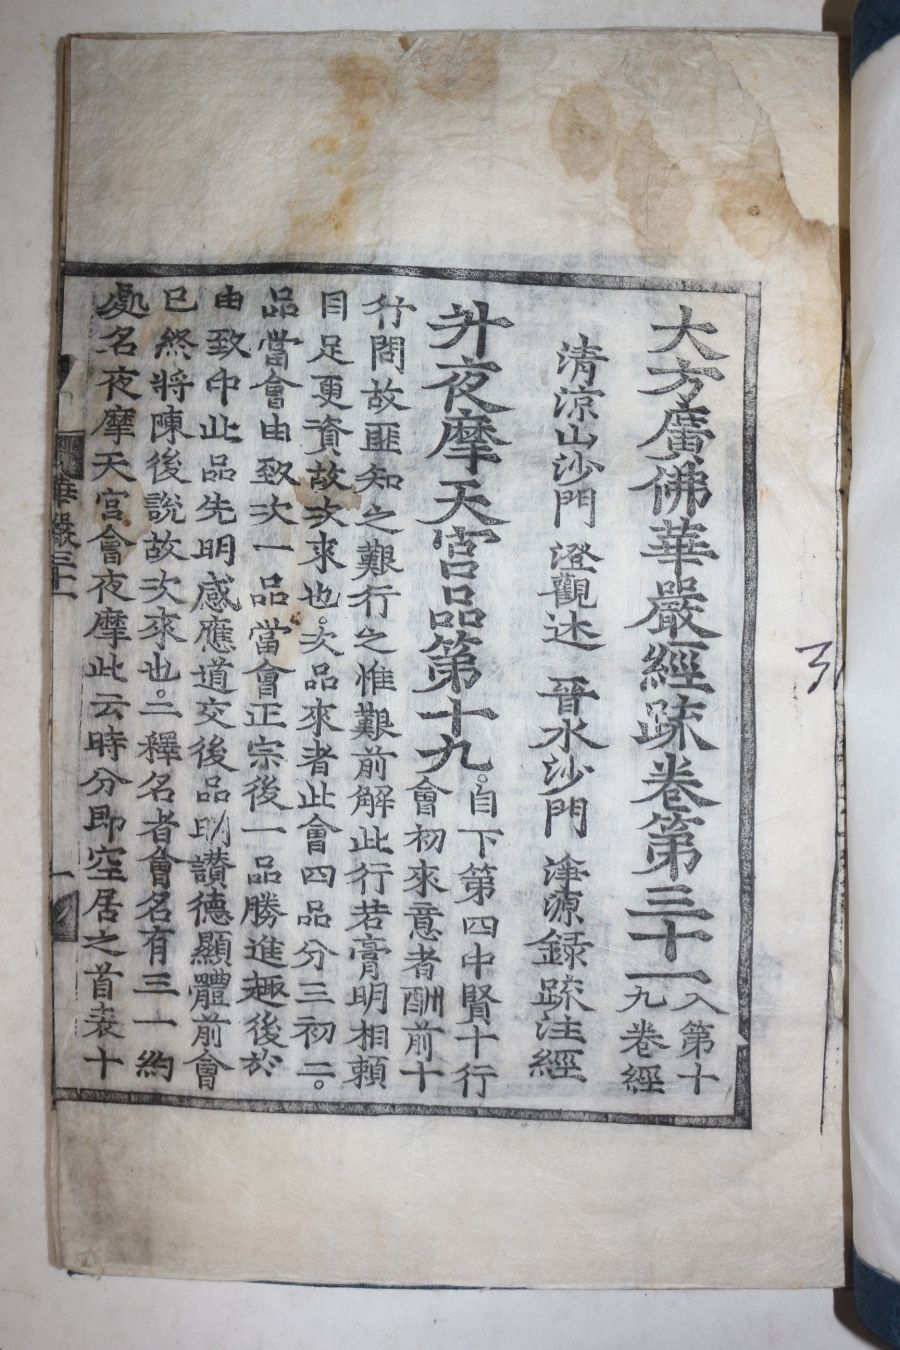 大方廣佛華嚴經疏卷第三十一 入第十九卷經
清涼山沙門 澄觀述 晉水沙門 淨源録疏注經
升夜摩天宮品第十九。自下第四中賢十行會初來意者酬前十
行問故匪知之艱行之惟艱前解此行若膏明相賴
目足更資故次來也。次品來者此會四品分三初二。
品當會由致次一品當會正宗後一品勝進趣後於
由致中此品先明感應道交後品明讚德顯體前會
已終將陳後說故次來也。二釋名者會名有三一約
處名夜摩天宮會夜摩此云時分即空居之首表十
華嚴三十一
一